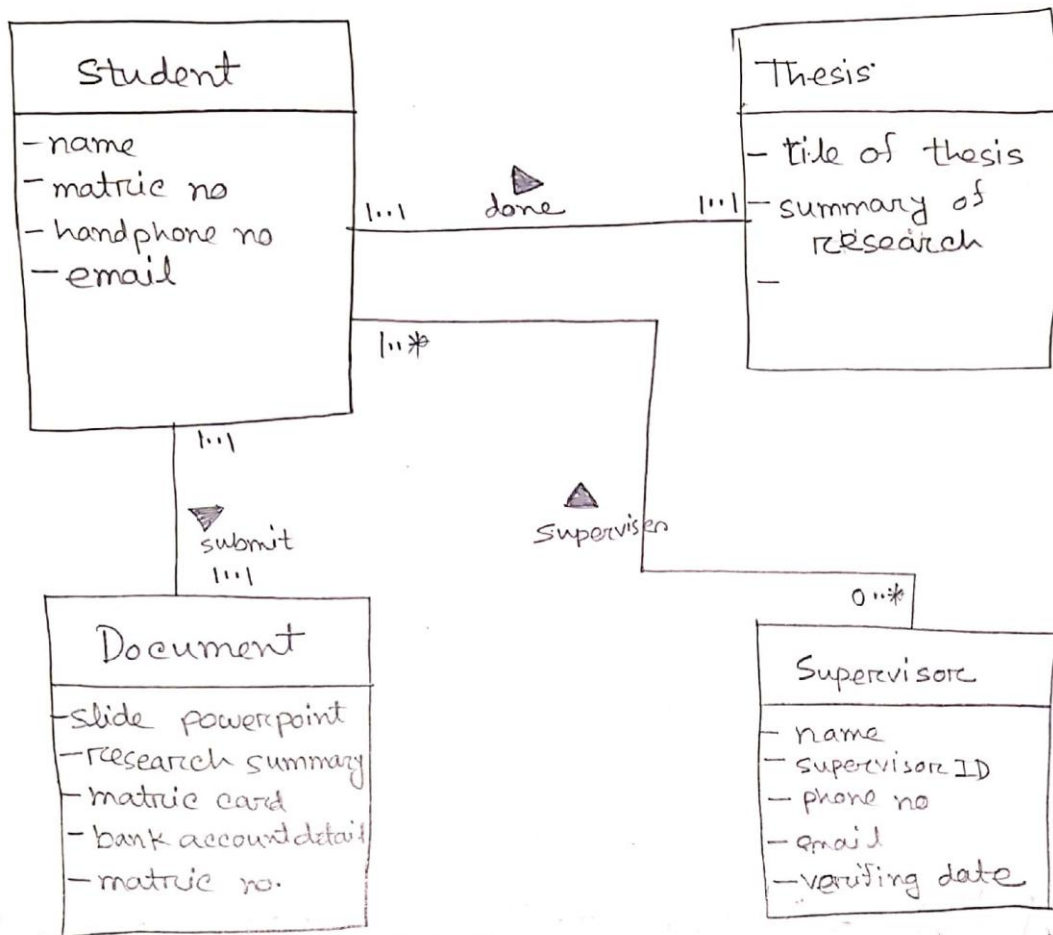 Student
- name
- matric no
- handphone no
- email
Thesis
- tile of thesis
- summary of
research
-
1..1
done
1..1
1..*
Supervises
0..*
1..1
submit
1..1
Document
- slide powerpoint
- research summary
- matric card
- bank account detail
- matric no.
Supervisor
- name
- supervisor ID
- phone no
- email
- verifing date